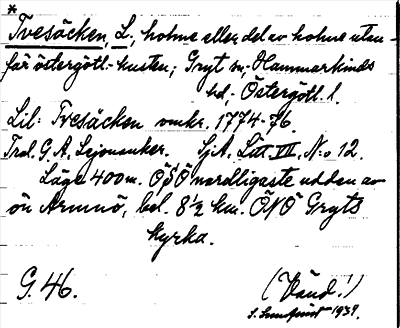 *
Tvesäcken, L., holme eller del av holme utan-
för östergötl.-kusten; Gryt sn; Hammarkinds
hd; Östergötl. l.
Lil: Tvesäcken omkr. 1774-76.
Trol. G. A. Lejonanker. SjA, Litt VII, No 12.
Läge 400 m. ÖSÖ nordligaste udden av
ön Armnö, bel. 8 1/2 km. ÖNÖ Gryts
kyrka.
G. 46.
(Vänd!)
S. 1939.